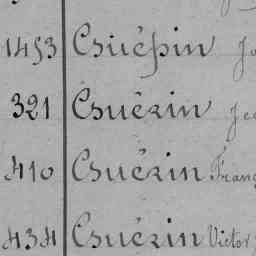 1453 Guépin Jo
321 Guérin Jea
410 Guérin Franç
434 Guérin Victor